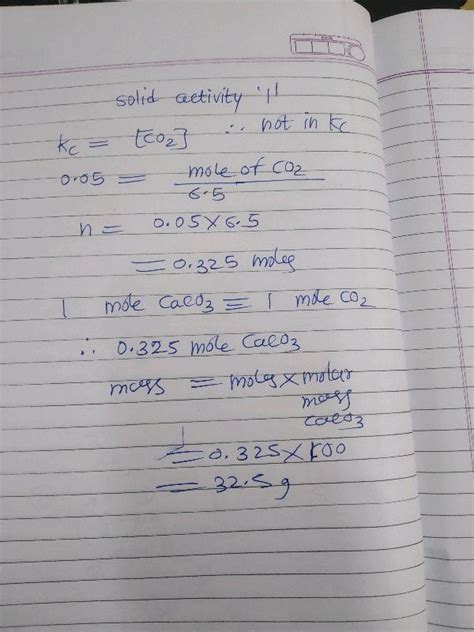 solid activity '1'
Kc = [CO2] ∴ not in Kc
0.05 = mole of CO2
6.5
n = 0.05 × 6.5
= 0.325 moles
1 mole CaCO3 ≡ 1 mole CO2
∴ 0.325 mole CaCO3
mass = moles × molar
mass
CaCO3
= 0.325 × 100
= 32.5 g